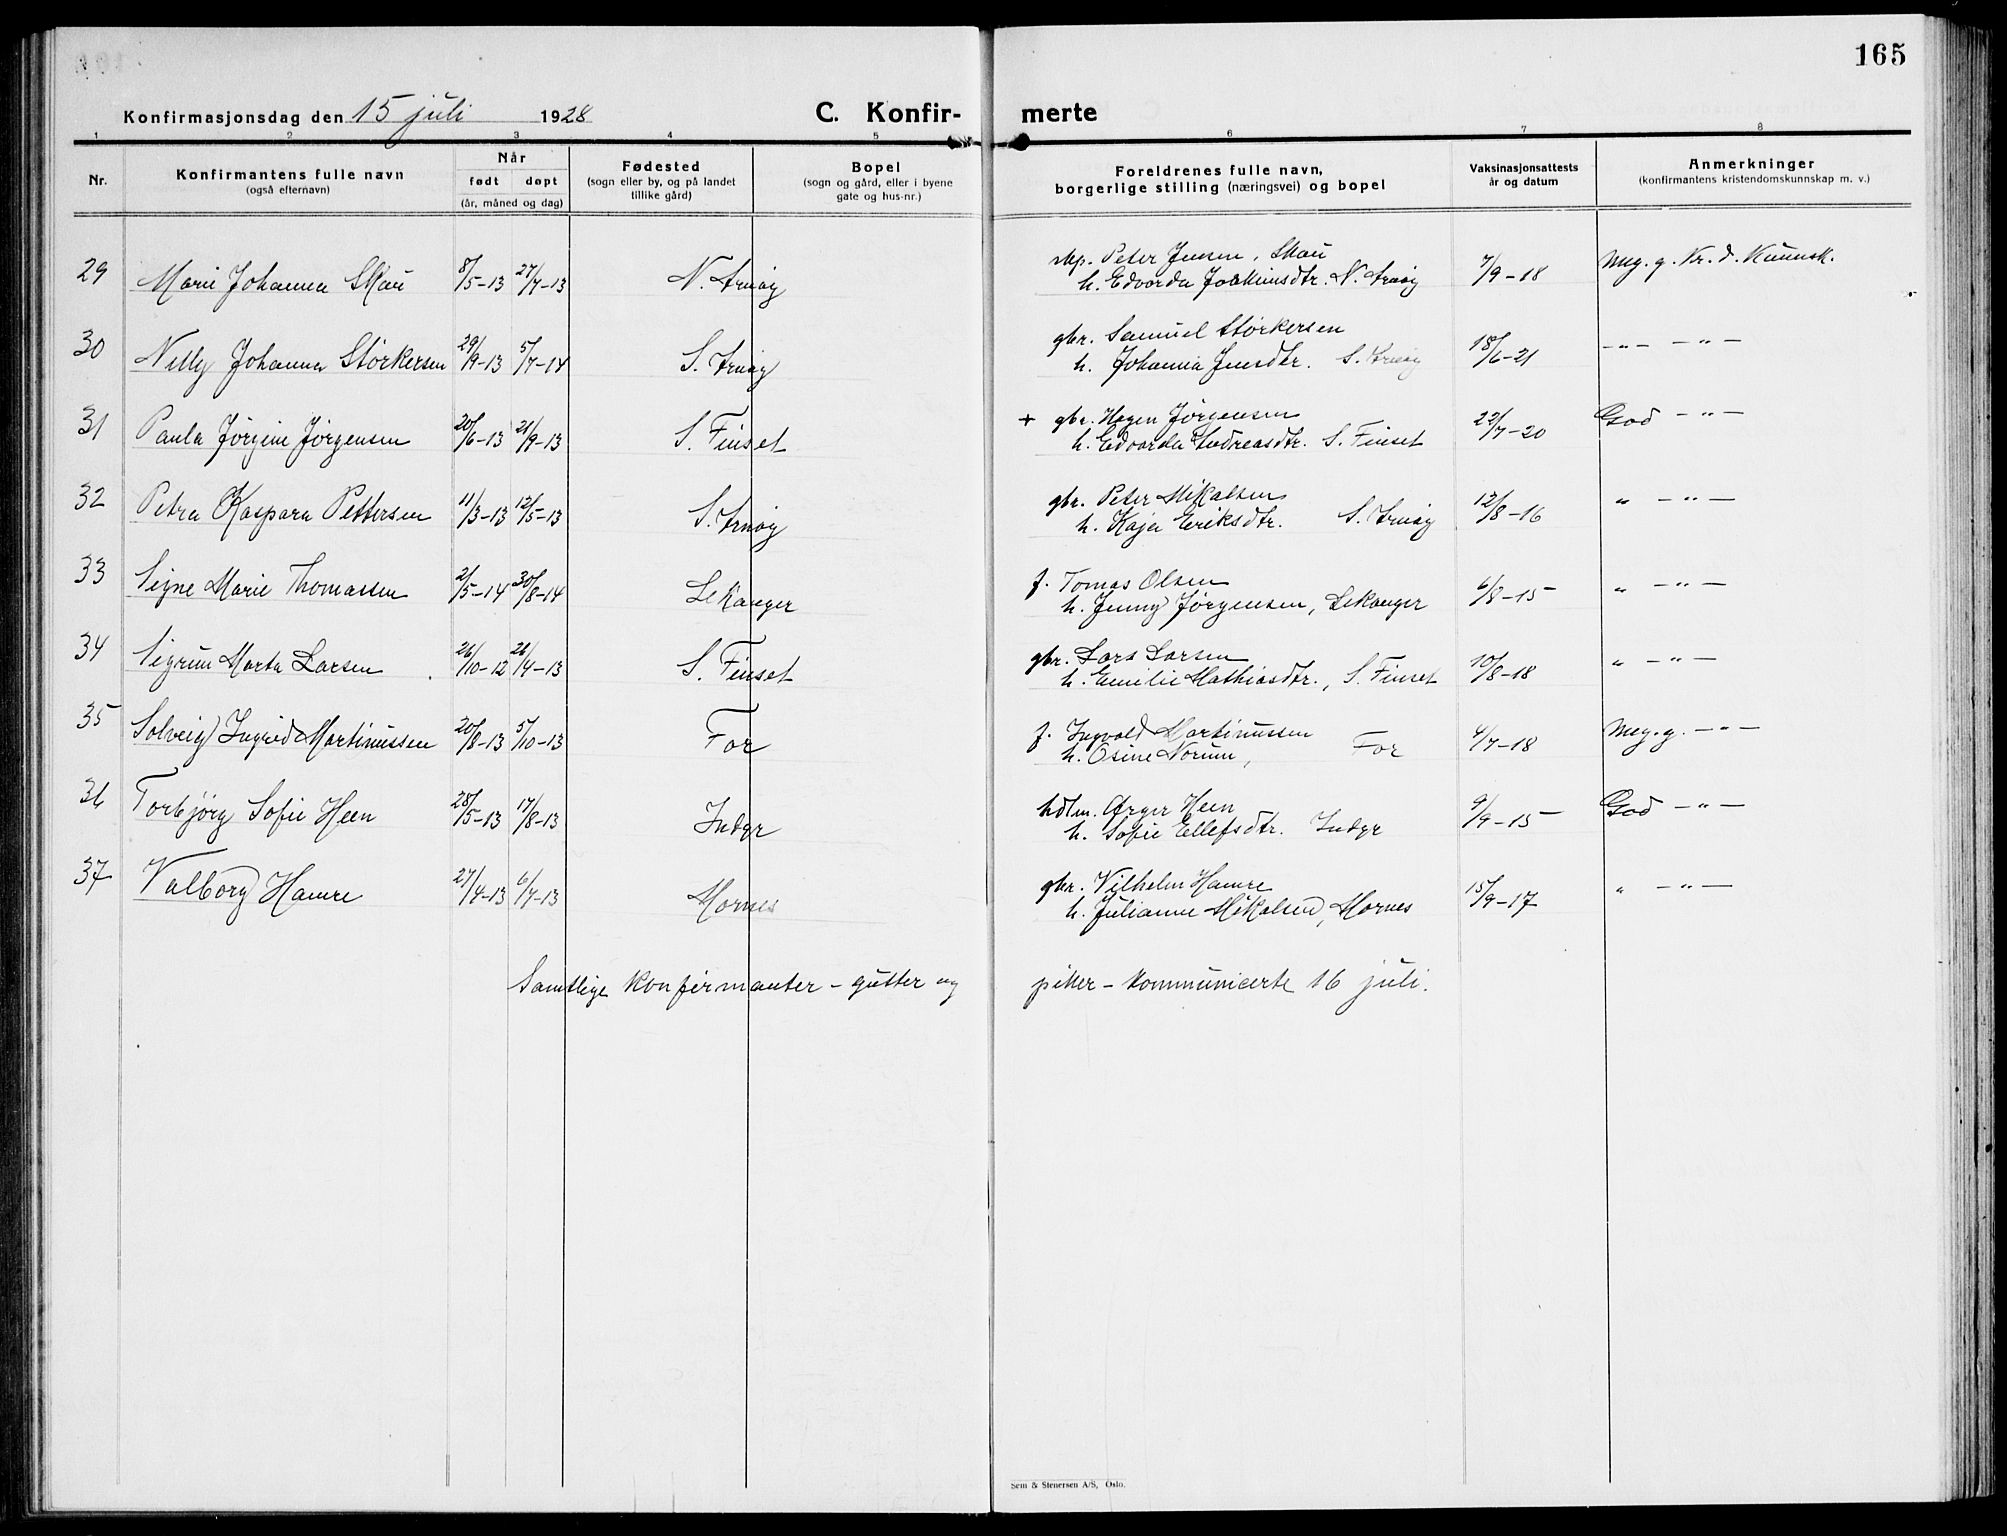 165
Konfirmasjonsdag den 15 juli 1928 C. Konfir- merte
1 2 3 4 5 6 7 8
Nr.
Konfirmantens fulle navn
(også efternavn)
Når
født døpt
(år, måned og dag)
Fødested
(sogn eller by, og på landet
tillike gård)
Bopel
(sogn og gård, eller i byene
gate og hus-nr.)
Foreldrenes fulle navn,
borgerlige stilling (næringsvei) og bopel
Vaksinasjonsattests
år og datum
Anmerkninger
(konfirmantens kristendomskunnskap m. v.)
29 Marie Johanna Skau 8/5-13 27/7-13 N. Arnøy
Peter Jensen, Skau
h. Edvarda Joakimsdtr. N. Arnøy 7/9-18 Meg. g. Kr. d. Kunnsk.
30 Nelly Johanna Størkersen 29/9-13 5/7-14 S. Arnøy
gbr. Samuel Størkersen
h. Johanna Jensdtr. S. Arnøy 18/6-21 -"- -"-
31 Paula Jørgine Jørgensen 20/6-13 21/9-13 S. Finset
+ gbr. Hagen Jørgensen
h. Edvarda Andreasdtr. S. Finset 22/7-20 God -"-
32 Petra Kaspara Pettersen 11/3-13 12/5-13 S. Arnøy
gbr. Peter Mikalsen
h. Kaja Eriksdtr. S. Arnøy 12/8-16 " -"-
33 Signe Marie Thomassen 2/5-14 30/8-14 Lekanger
f. Tomas Olsen
h. Jenny Jørgensen, Lekanger 6/8-15 " -"-
34 Sigrun Marta Larsen 26/10-12 28/4-13 S. Finset
gbr. Lars Larsen
h. Emilie Mathiasdtr., S. Finset 10/8-18 " -"-
35 Solveig Ingrid Martinussen 20/8-13 5/10-13 For
f. Ingvald Martinussen
h. Osine Norum, For 4/7-18 Meg. g. -"-
36 Torbjørg Sofie Heen 28/5-13 17/8-13 Indyr
hdlm. Heen
h. Sofie Ellefsdtr. Indyr 9/9-15 God -"-
37 Valborg Hamre 27/4-13 6/7-13 Mornes
gbr. Vilhelm Hamre
h. Julianne Mikalsen, Mornes 15/9-17 " -"-
Samtlige konfirmanter - gutter og piker - kommunicerte 16 juli.
Sem & Stenersen A/S, Oslo.